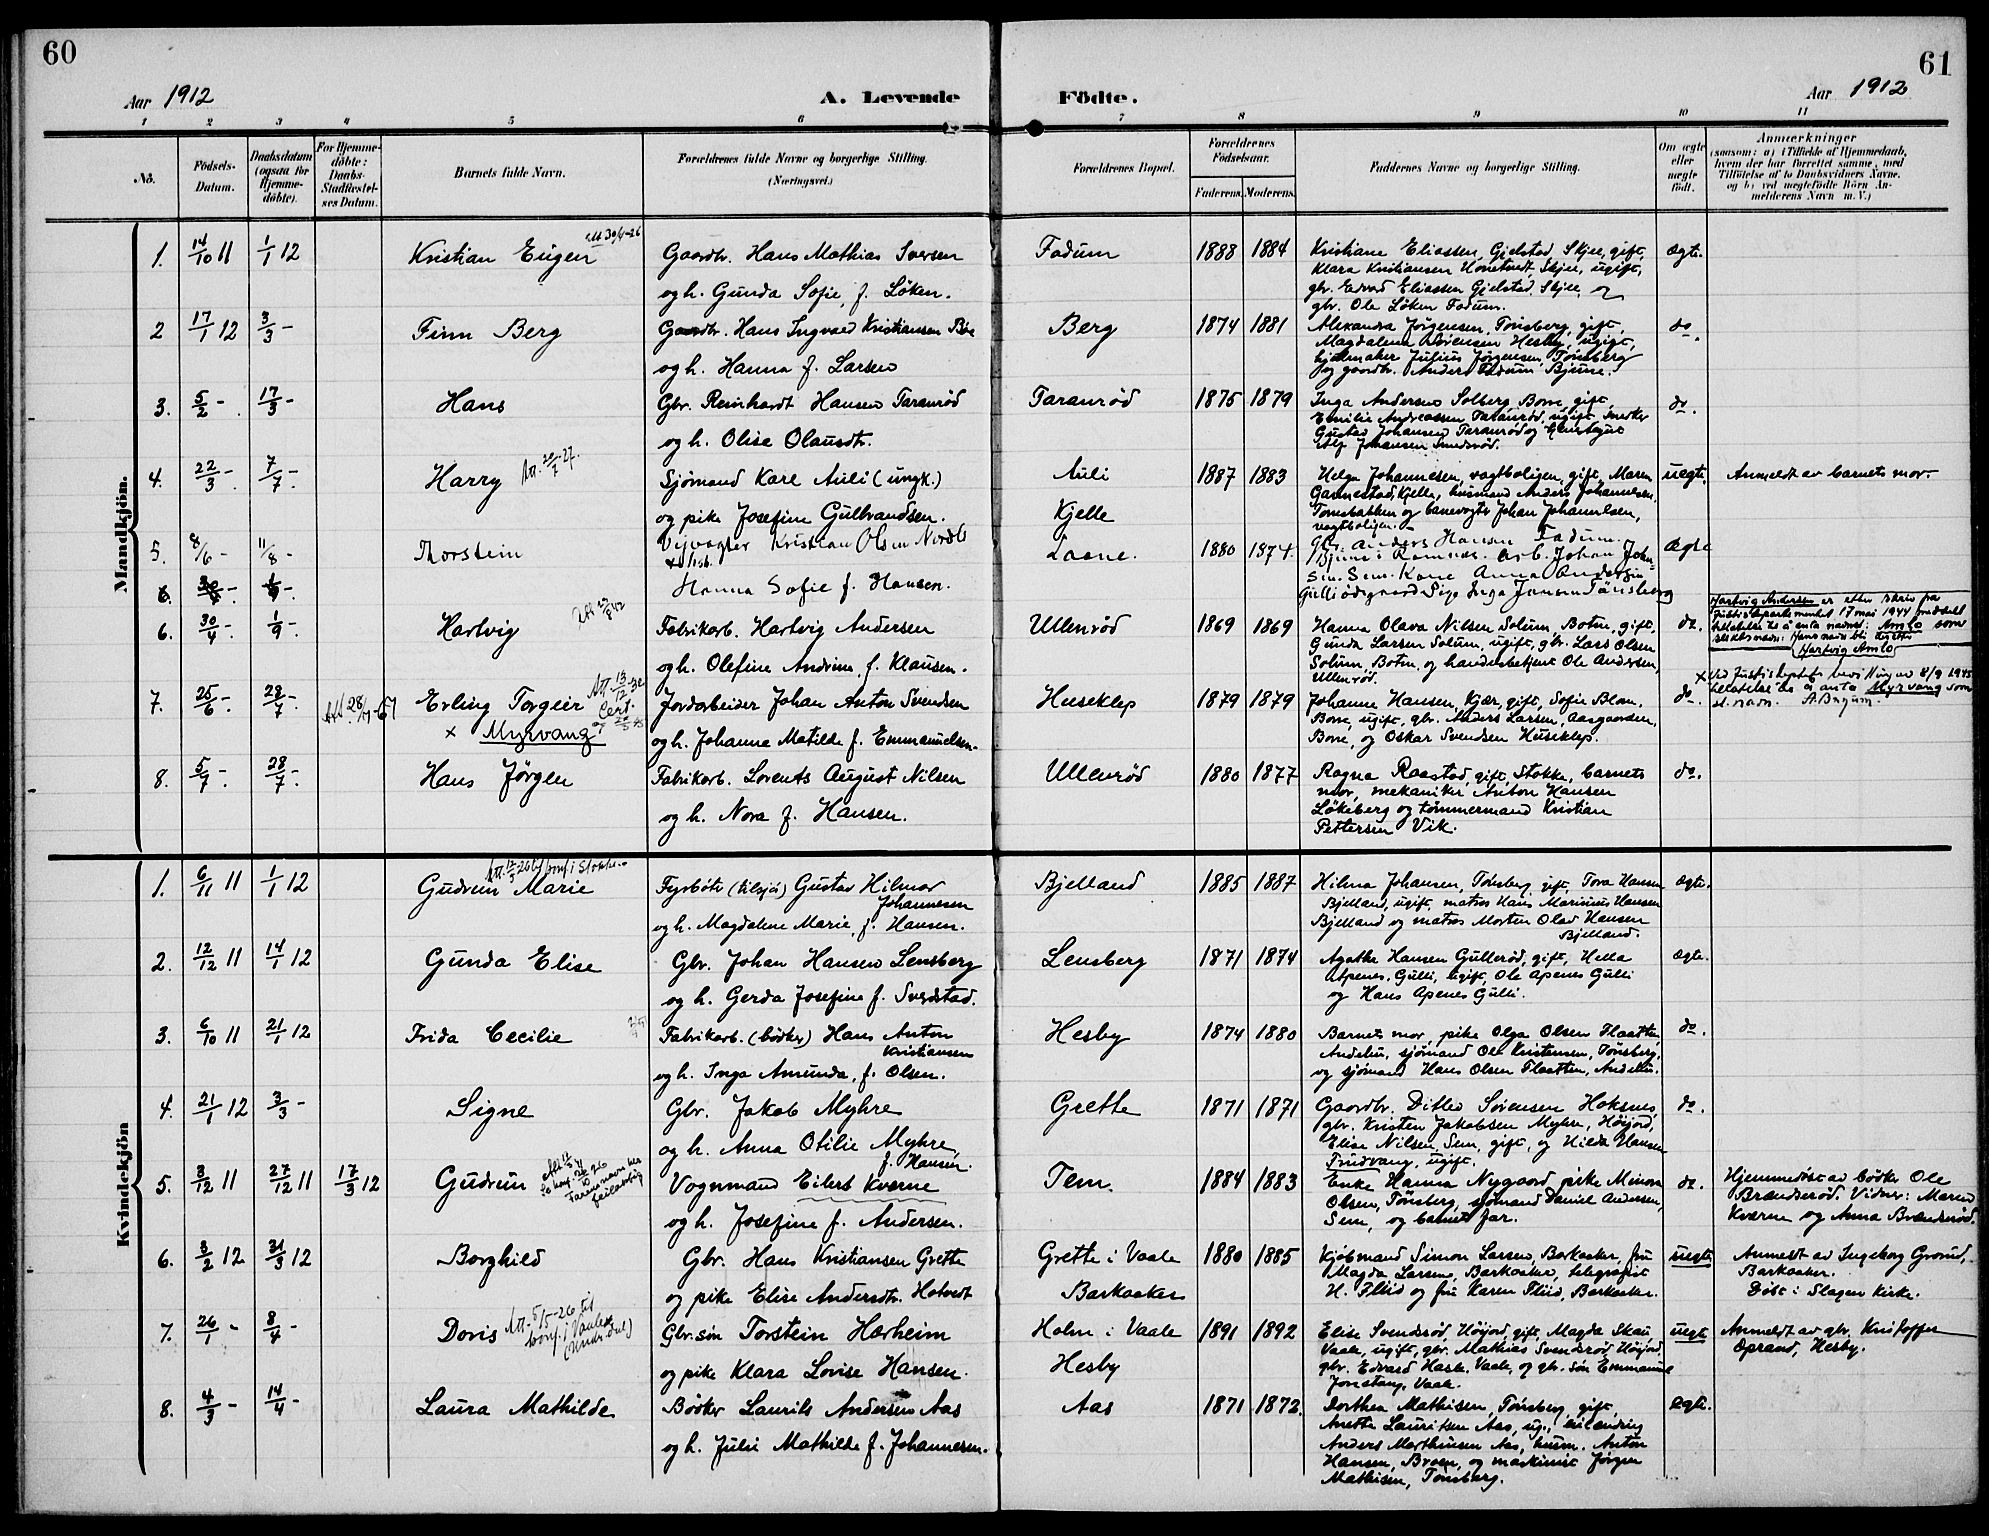 60
61
Aar 1912
A. Levende
Födte.
Aar 1912
1 2 3 4 5 6 7 8 9 10 11
No.
Födsels-Datum.
Daabsdatum (ogsaa for Hjemme-döbte).
For Hjemme-döbte: Daabs-Stadfæstel-ses Datum.
Barnets fulde Navn.
Forældrenes fulde Navne og borgerlige Stilling.
(Næringsvei.)
Forældrenes Bopæl.
Forældrenes Födselsaar.
Faderens. Moderens.
Faddernes Navne og borgerlige Stilling.
Om ægte eller uægte födt.
Anmærkninger
(saasom: a) i Tilfælde af Hjemmedaab,
hvem der har forrettet samme, med
Tilföielse af to Daabsvidners Navne,
og b) ved uægtefödte Börn An-
melderens Navn m. V.)
Mandkjön.
1. 14/10 11 1/1 12 Kristian Eugen Att 30/4-26 Gaardbr. Hans Mathias Iversen Fadum 1888 1884 Kristiane Eliassen, Gjelstad, Skjee, gift, ægte.
Klara Kristiansen Skjee, ugift,
og h. Gunda Sofie, f. Løken.
gbr. Edvard Eliassen Gjelstad, Skjee, og
gbr. Ole Løken Fadum.
2 17/1 12 3/3 - Finn Berg Gaardbr. Hans Ingvald Kristiansen Berg 1874 1881 Alexandra Jørgensen, Tønsberg, gift, do.
Magdalene Sørensen Hesby, ugift,
og h. Hanna f. Larsen
Julius Jørgensen, Tønsberg
og gaardbr. Anders Fadum, Bjune.
3. 5/2 - 17/3 - Hans Gbr. Reinhardt Hansen Taranrød Taranrød 1875 1879 Inga Andersen Solberg Borre, gift, do.
Emilie Andreassen Taranrød, ugift, smed
og h. Olise Olausdtr.
Gustav Johansen Taranrød og
Alf Johansen
4. 22/3 - 7/7 - Harry Att. 20/7-27. Sjømand Karl Auli (ungk.) Auli 1887 1883 Helga Johannesen, vagtboligen, gift, Maren uegte. Anmeldt av barnets mor.
Kjelle, husmand Anders Johannesen,
og pike Josefine Gulbrandsen. Kjelle
og banevogter Johan Johannesen,
vagtboligen.
5. 8/6 - 11/8 - Thorstein Veivogter Kristian Olsen Laane. 1880 1874. Gbr. Anders Hansen Fadum. Ægte
Ramnes. Arb. Johan
Hanna Sofie f. Hansen.
Sem. Kone Anna
Gulliødegaard Inga Jensen Tønsberg
6.
6. 30/4 - 1/9 - Hartvig Fabrikarb. Hartvig Andersen Ullenrød 1869 1869 Hanna Olava Nilsen Solum, Botne, gift, do. Hartvig Andersen er etter skriv fra
Justisdepartementet 17 mai 1944 meddelt
tillatelse til å anta navnet: Amlo som
slektsnavn. Hans navn blir deretter
Hartvig Amlo
Gunda Larsen Solum, ugift, gbr. Lars Olsen
og h. Olefine Andrine, f. Klausen.
Solum, Botne, og handelsbetjent Ole Andersen,
Ullenrød.
7. 25/6 - 28/7 - Att 28/7-67 Erling Torgeir Att. 13/12-32 Cert. Jordarbeider Johan Anton Svendsen Huseklep 1879 1879 Johanne Hansen, Kjær, gift, Sofie Blom, do. × Ved Justisdeptets bevilling av 8/9 1945
tillatelse til å anta Myrvang som
sl. navn.
× Myrvang og h. Johanna Matilde f. Emmanuelsen.
Borre, ugift, gbr. Anders Larsen, Aasgaarden,
Borre, og Oskar Svendsen Huseklep.
8. 5/7 - 28/7 - Hans Jørgen Fabrikarb. Lorents August Nilsen Ullenrød 1880 1877 Ragna Raastad, gift, Stokke, barnets do.
mor, mekaniker Anton Hansen
og h. Nora f. Hansen.
Løkeberg og tømmermand Kristian
Pettersen Vik.
Kvindekjön
1. 6/11 11 1/1 12 Gudrun Marie Att. 17/3-26 til konf. i Stokke. Fyrbøter (tilsjøs) Gustav Hilmar Johannesen Bjelland 1885 1887 Hilma Johansen, Tønsberg, gift, Tora Hansen ægte.
Bjelland, ugift, matros Hans Marinius Hansen
og h. Magdalene Marie, f. Hansen.
Bjelland og matros Morten Olav Hansen
Bjelland.
2. 12/12 11 14/1 12 Gunda Elise Gbr. Johan Hansen Lensberg Lensberg 1871 1874 Agathe Hansen Gullerød, gift, Hella ægte.
Apenes, Gulli, ugift, Ole Apenes Gulli
og h. Gerda Josefine f. Sverdstad.
og Hans Apenes Gulli.
3. 6/10 11 21/1 12 Frida Cecilie Fabrikarb. (bødker) Hans Anton Kristiansen Hesby 1874 1880 Barnets mor, pike Olga Olsen Flaatten, do.
Andebu, sjømand Ole Kristensen, Tønsberg,
og h. Inga Amunda, f. Olsen.
og sjømand Hans Olsen Flaatten, Andebu.
4. 21/1 12 3/3 - Signe Gbr. Jakob Myhre Grette 1871 1871 Gaardbr. Ditlev Sørensen Hoksnes, do.
gbr. Kristen Jakobsen Myhre, Høijord,
og h. Anna Otilie Myhre, f. Hansen.
Elise Nilsen, Sem, gift, og Hilda Hansen
Trudvang, ugift.
5. 3/12 11 27/12 11 17/3 12 Gudrun Farens navn her feilaktig Vognmand Eilert Kverne Tem 1884 1883 Enke Hanna Nygaard, pike Minora do. Hjemmedøbt av bødker Ole
Olsen, Tønsberg, sjømand Daniel Andersen, Brændsrød. Vidner: Maren
og h. Josefine f. Andersen.
Sem, og barnets far. Kværne og Anna Brændsrød.
6. 3/2 12 31/3 12 Borghild Gbr. Hans Kristiansen Grette Grette i Vaale 1880 1885 Kjøbmand Simon Larsen, Barkaaker, fru uegte Anmeldt av Ingeborg Grorud,
Magda Larsen, Barkaaker, telegrafist Barkaaker.
og pike Elise Andersdtr. Hotvedt Barkaaker
H. Fluid og fru Karen Fluid, Barkaaker. Døbt i Slagen kirke.
7. 26/1 - 8/4 - Doris Att. 5/5-26 til konf. i Vaale (Undrumsdal) Gbr.søn Torstein Hærheim Holm i Vaale 1891 1892 Elise Svendsrød, Høijord, gift, Magda Skau, uegte Anmeldt av gbr. Kristoffer
Vaale, ugift, gbr. Mathias Svendsrød, Høijord, Oprand, Hesby.
og pike Klara Lovise Hansen. Hesby
gbr. Edvard Hasle, Vaale, og gbr. søn Emmanuel
Vaale.
8. 4/3 - 14/4 - Laura Mathilde Bødker Laurits Andersen Aas Aas 1871 1872. Dorthea Mathisen, Tønsberg, gift, ægte.
Anette Lauritsen Aas, ug.,
og h. Julie Mathilde f. Johannesen.
Anders Marthinsen Aas, husm. Anton
Hansen, Broen, og maskinist Jørgen
Mathisen, Tønsberg.